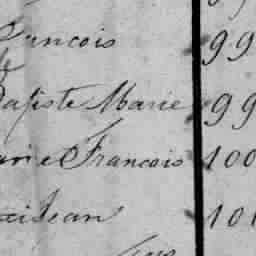 ancois 99
Baptiste Marie 99
arie Francois 100
Jean 101